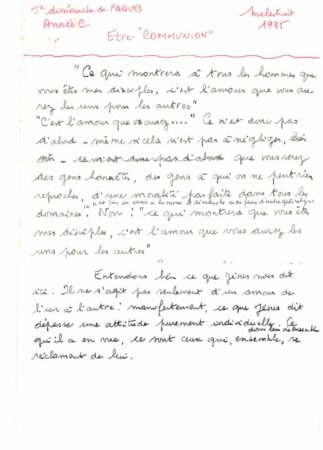 5e dimanche de PAQUES
Malestroit
Année C
1995
Etre "COMMUNION"
"Ce qui montrera à tous les hommes que
vous êtes mes disciples, c'est l'amour que vous au-
rez les uns pour les autres"
"C'est l'amour que vs aurez...." Ce n'est donc pas
d'abord - même si cela n'est pas à négliger, bien
sûr - ce n'est donc pas d'abord que vous serez
des gens honnêtes, des gens à qui on ne peut rien
reprocher, d'une moralité parfaite dans tous les
ce n'est pas que vous à la messe le dimanche
domaines. Non : "ce qui montrera que vous êtes
mes disciples, c'est l'amour que vous aurez les
uns pour les autres"
Entendons bien ce que Jésus nous dit
ici. Il ne s'agit pas seulement d'un amour de
l'un à l'autre : manifestement, ce que Jésus dit
dépasse une attitude purement individuelle. Ce
dans leur vie ensemble
qu'il a en vue, ce sont ceux qui, ensemble, se
réclament de lui.